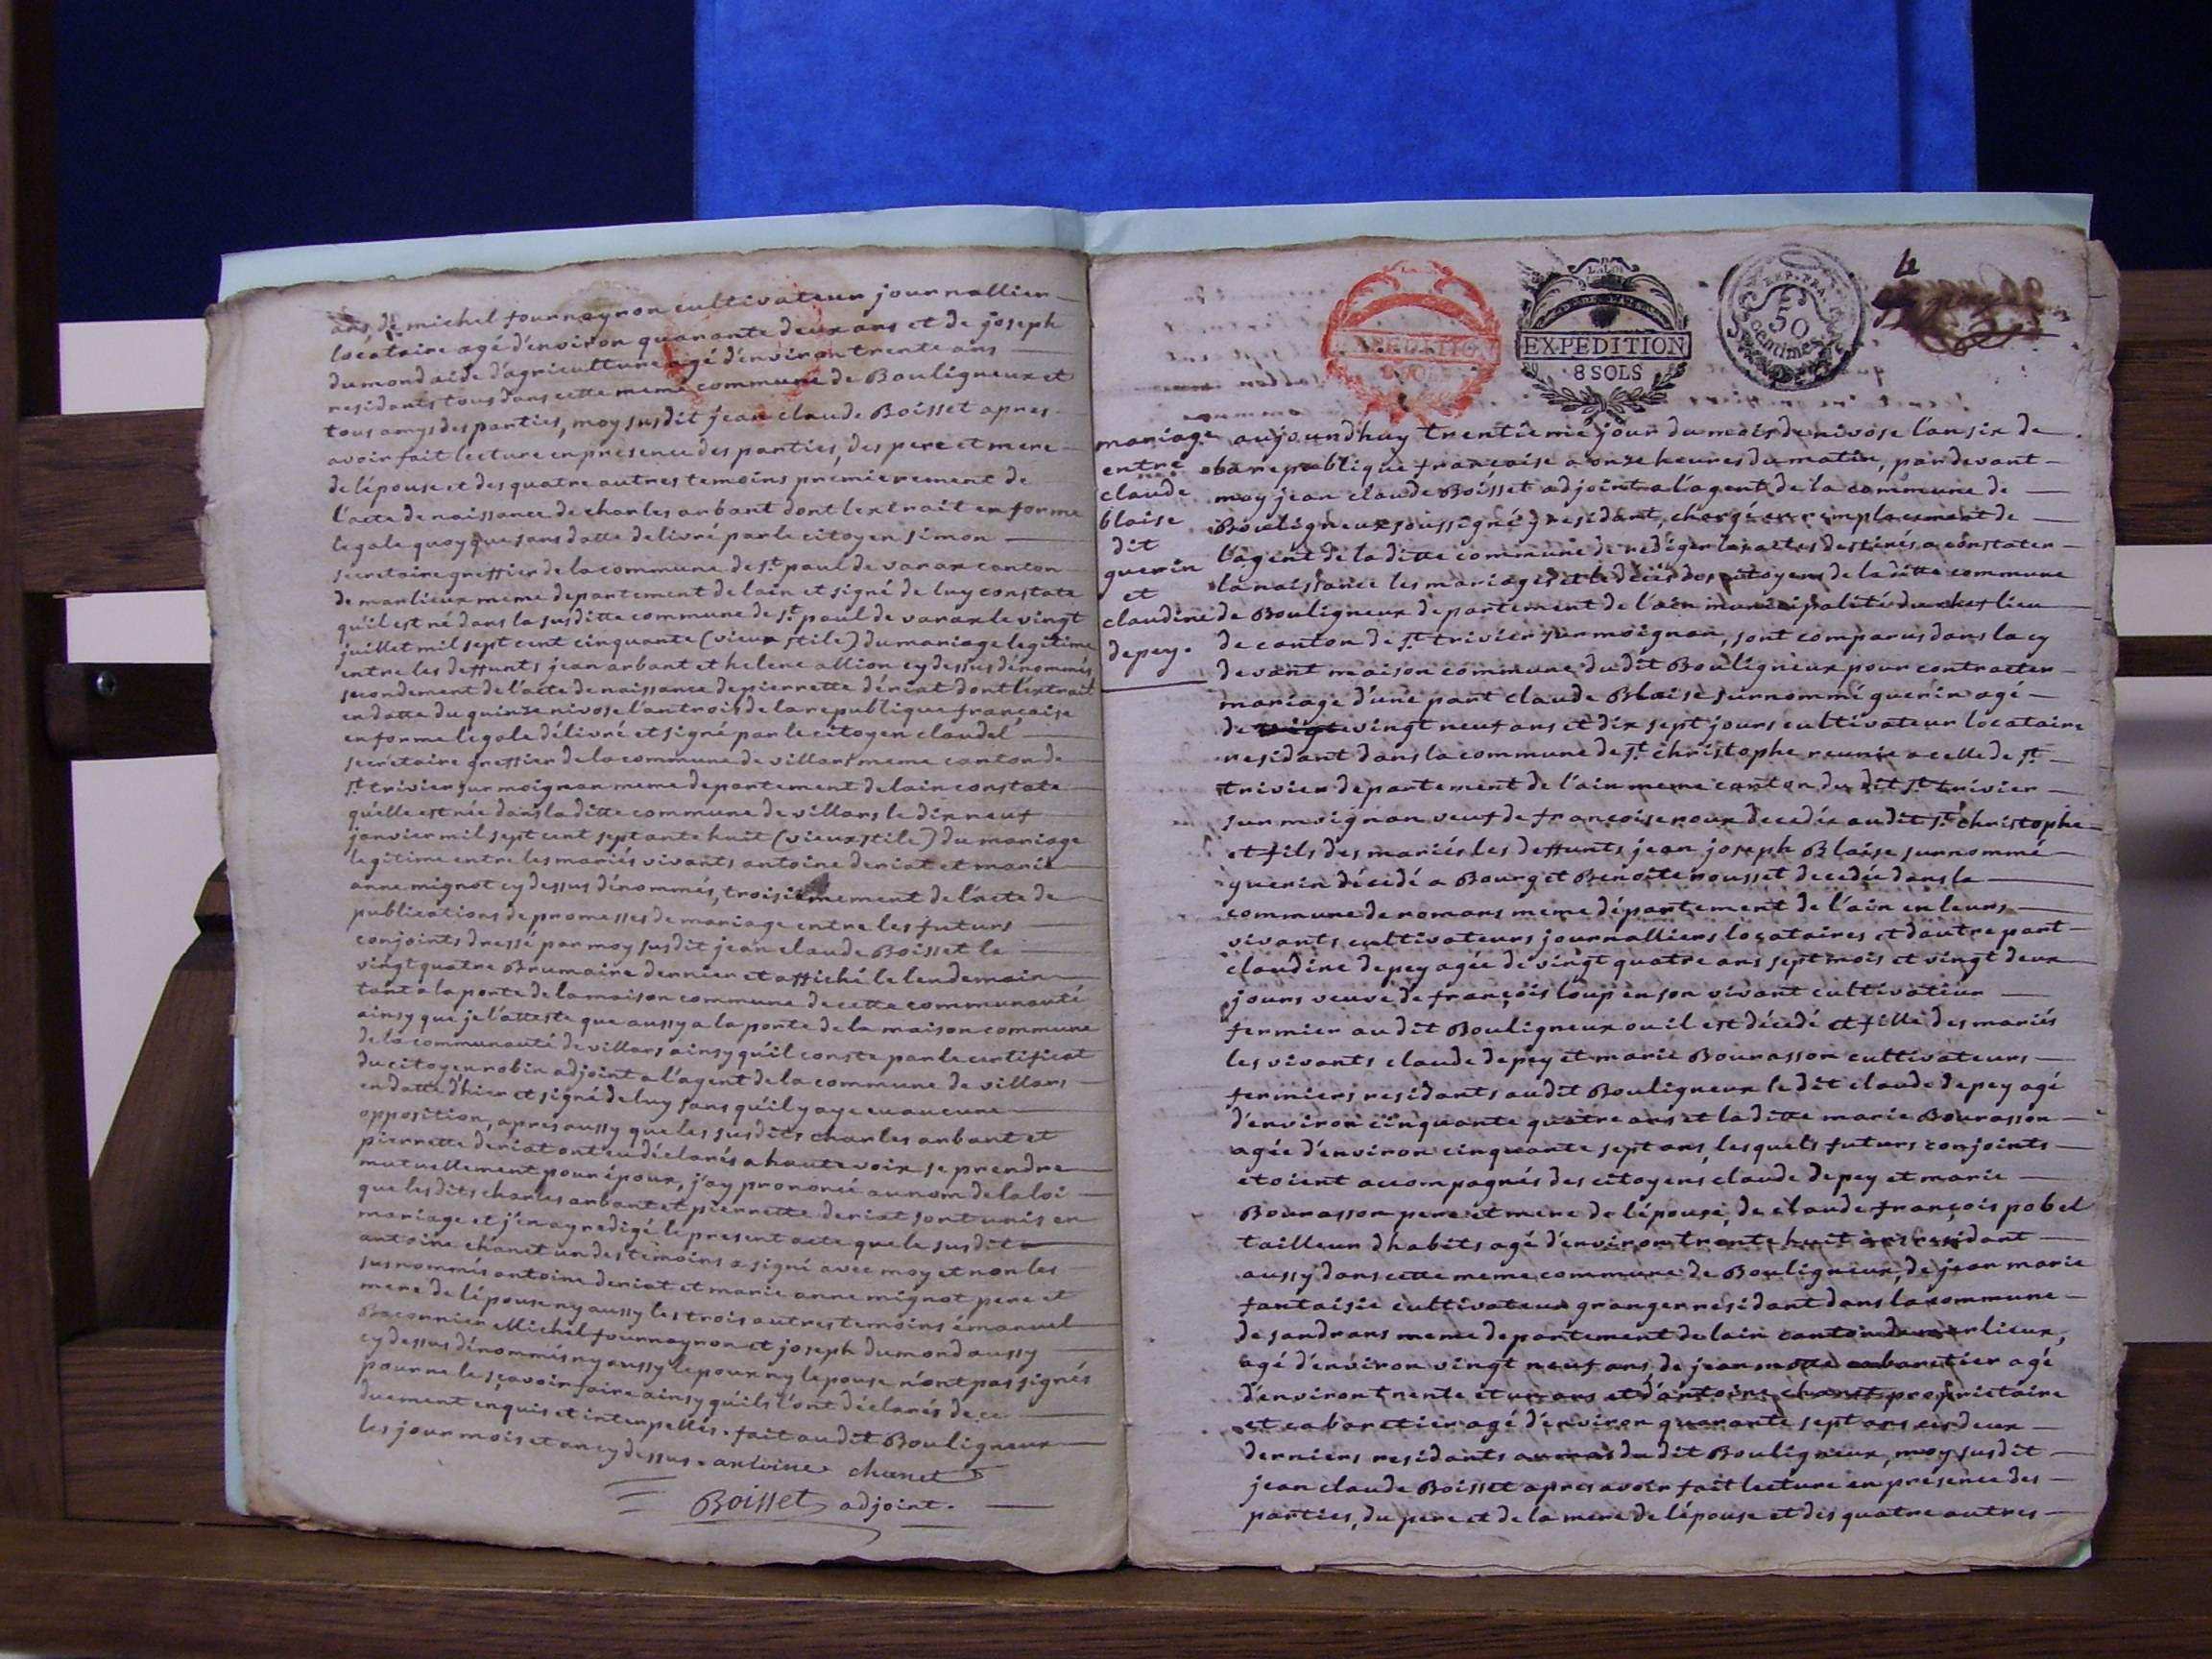 ans, de michel fournayron cultivateur journallier
locataire agé d'environ quarante deux ans et de joseph
dumond aide d'agriculture agé d'environ trente ans
residants tous dans cette meme commune de Bouligneux et
tous amys des parties, moy susdit jean claude Boisset apres
avoir fait lecture en presence des parties, des pere et mere
de l'épouse et des quatre autres temoins premierement de
l'acte de naissance de charles arbant dont lextrait en forme
legale quoy que sans datte delivré par le citoyen simon
secretaire greffier de la commune de st paul de varax canton
de marlieux meme departement de lain et signé de luy constate
qu'il est né dans la susditte commune de st paul de varax le vingt
juillet mil sept cent cinquante (vieux stile) du mariage legitime
entre les deffunts jean arbant et helene allion cy dessus dénommés
secondement de l'acte de naissance de pierrette dériat dont l'extrait
en datte du quinze nivose l'an trois de la republique française
en forme legale délivré et signé par le citoyen claudel
secretaire greffier de la commune de villars meme canton de
st trivier sur moignan meme departement de lain constate
qu'elle est née dans la ditte commune de villars le dix neuf
janvier mil sept cent septante huit (vieux stile) du mariage
legitime entre les mariés vivants antoine deriat et marie
anne mignot cy dessus dénommés, troisiemement de l'acte de
publications de promesses de mariage entre les futurs
conjoints dressé par moy susdit jean claude Boisset le
vingt quatre Brumaire dernier et affiché le lendemain
tant a la porte de la maison commune de cette communauté
ainsy que je l'atteste que aussy a la porte de la maison commune
de la communauté de villars ainsy qu'il conste par le certificat
du citoyen robin adjoint a l'agent de la commune de villars
en datte d'hier et signé de luy sans qu'il y aye eu aucune
opposition, apres aussy que les susdits charles arbant et
pierrette deriat ont eu déclarés a haute voix se prendre
mutuellement pour époux, j'ay prononcé au nom de la loi
que les dits charles arbant et pierrette deriat sont unis en
mariage et j'en ay redigé le present acte que le susdit
antoine chanet un des temoins a signé avec moy et non les
susnommés antoine deriat et marie anne mignot pere et
mere de l'épouse ny aussy les trois autres temoins émanuel
Baconnier Michel fournayron et joseph dumond aussy
cy dessus dénommés ny aussy lepoux ny lepouse n'ont pas signés
pour ne le sçavoir faire ainsy qu'ils l'ont déclarés de ce
duement enquis et interpellés. fait au dit Bouligneux
les jour mois et an cy dessus. antoine chanet
Boisset adjoint.
EXPEDITION
LA LOI
EXPEDITION
8 SOLS
REP. FRA.
50
centimes
mariage
entre
claude
blaise
dit
guerin
et
claudine
depey.
aujourdhuy trentieme jour du mois de nivose l'an six de
la republique française a onze heures du matin, pardevant
moy jean claude Boisset adjoint a l'agent de la commune de
Bouligneux soussigné y residant, chargé en remplacement de
l'agent de la ditte commune de rediger les actes destinés a constater
la naissance les mariages et le décés des citoyens de la ditte commune
de Bouligneux departement de l'ain municipalité du chef lieu
de canton de st trivier sur moignan, sont comparus dans la cy
devant maison commune du dit Bouligneux pour contracter
mariage d'une part claude Blaise surnommé guerin agé
de vingt neuf ans et dix sept jours cultivateur locataire
residant dans la commune de st christophe reunie a celle de st
trivier departement de l'ain meme canton du dit st trivier
sur moignan veuf de françoise roux decedée au dit st christophe
et fils des mariés les deffunts jean joseph Blaise surnommé
guerin décédé a Bourg et Benoite rousset decedée dans la
commune de romans meme département de l'ain en leurs
vivants cultivateurs journalliers locataires et d'autre part
claudine depey agée de vingt quatre ans sept mois et vingt deux
jours veuve de françois loup en son vivant cultivateur
fermier au dit Bouligneux ou il est décedé et fille des mariés
les vivants claude depey et marie Bourasson cultivateurs
fermiers residants au dit Bouligneux le dit claude depey agé
d'environ cinquante quatre ans et la ditte marie Bourasson
agée d'environ cinquante sept ans, lesquels futurs conjoints
etoient accompagnés des citoyens claude depey et marie
Bourasson pere et mere de l'épouse, de claude françois pobel
tailleur d'habits agé d'environ trente huit ans residant
aussy dans cette meme commune de Bouligneux, de jean marie
fantaisie cultivateur granger residant dans la commune
de sandrans meme departement de lain canton de marlieux,
agé d'environ vingt neuf ans, de jean motte cabaretier agé
d'environ trente et un ans et d'antoine chanet proprietaire
et cabaretier agé d'environ quarante sept ans ces deux
derniers residants au mas du dit Bouligneux, moy susdit
jean claude Boisset apres avoir fait lecture en presence des
parties, du pere et de la mere de l'épouse et des quatre autres